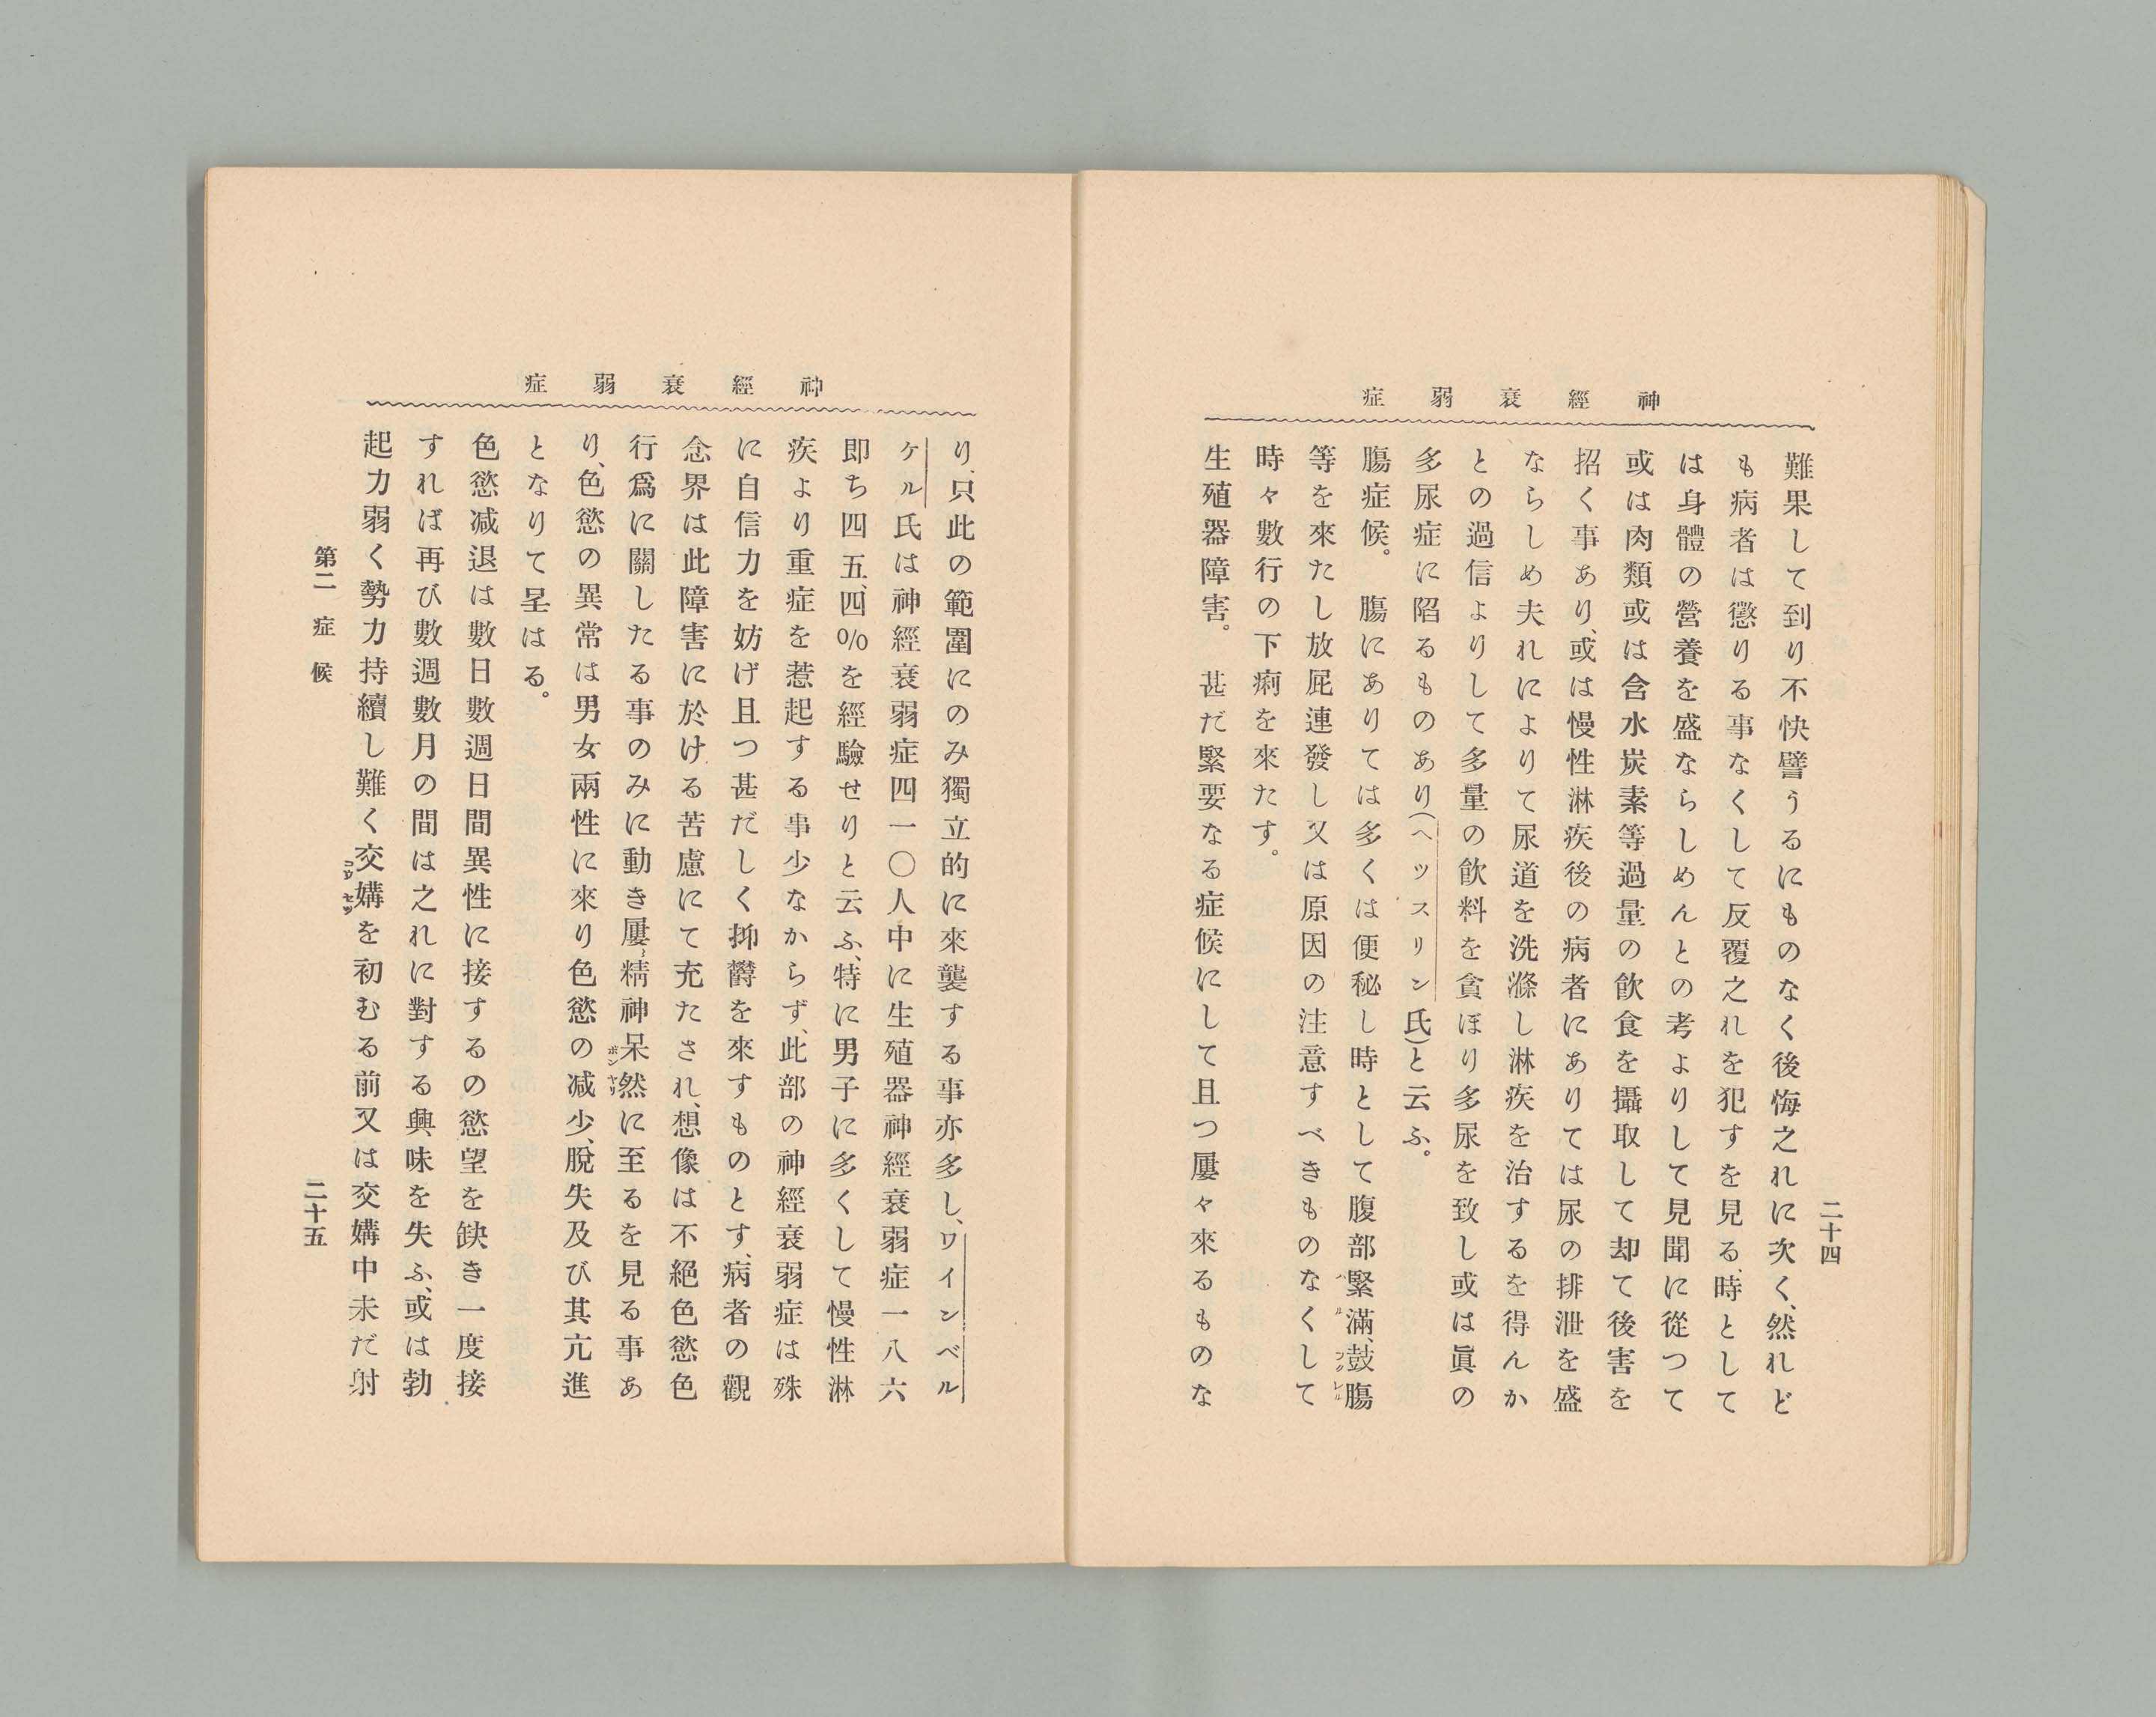 神經衰弱症
二十四
難果して到り不快譬うるにものなく後悔之れに次く、然れど
も病者は懲りる事なくして反覆之れを犯すを見る、時として
は身體の營養を盛ならしめんとの考よりして見聞に從つて
或は肉類或は含水炭素等過量の飮食を攝取して却て後害を
招く事あり、或は慢性淋疾後の病者にありては尿の排泄を盛
ならしめ夫れによりて尿道を洗滌し淋疾を治するを得んか
との過信よりして多量の飮料を貪ぼり多尿を致し或は眞の
多尿症に陷るものあり(ヘッスリン氏)と云ふ。
腸症候。　腸にありては多くは便秘し時として腹部緊滿、鼓腸
等を來たし放屁連發し又は原因の注意すべきものなくして
時々數行の下痢を來たす。
生殖器障害。　甚だ緊要なる症候にして且つ屢々來るものな
神經衰弱症
り、只此の範圍にのみ獨立的に來襲する事亦多し、ワインベル
ケル氏は神經衰弱症四一〇人中に生殖器神經衰弱症一八六
即ち四五、四%を經驗せりと云ふ、特に男子に多くして慢性淋
疾より重症を惹起する事少なからず、此部の神經衰弱症は殊
に自信力を妨げ且つ甚だしく抑欝を來すものとす、病者の觀
念界は此障害に於ける苦慮にて充たされ、想像は不絕色慾色
行爲に關したる事のみに動き屢〻精神呆然に至るを見る事あ
り、色慾の異常は男女兩性に來り色慾の減少、脫失及び其亢進
となりて呈はる。
色慾減退は數日數週日間異性に接するの慾望を缺き一度接
すれば再び數週數月の間は之れに對する興味を失ふ、或は勃
起力弱く勢力持續し難く交媾を初むる前又は交媾中未だ射
第二　症候
二十五